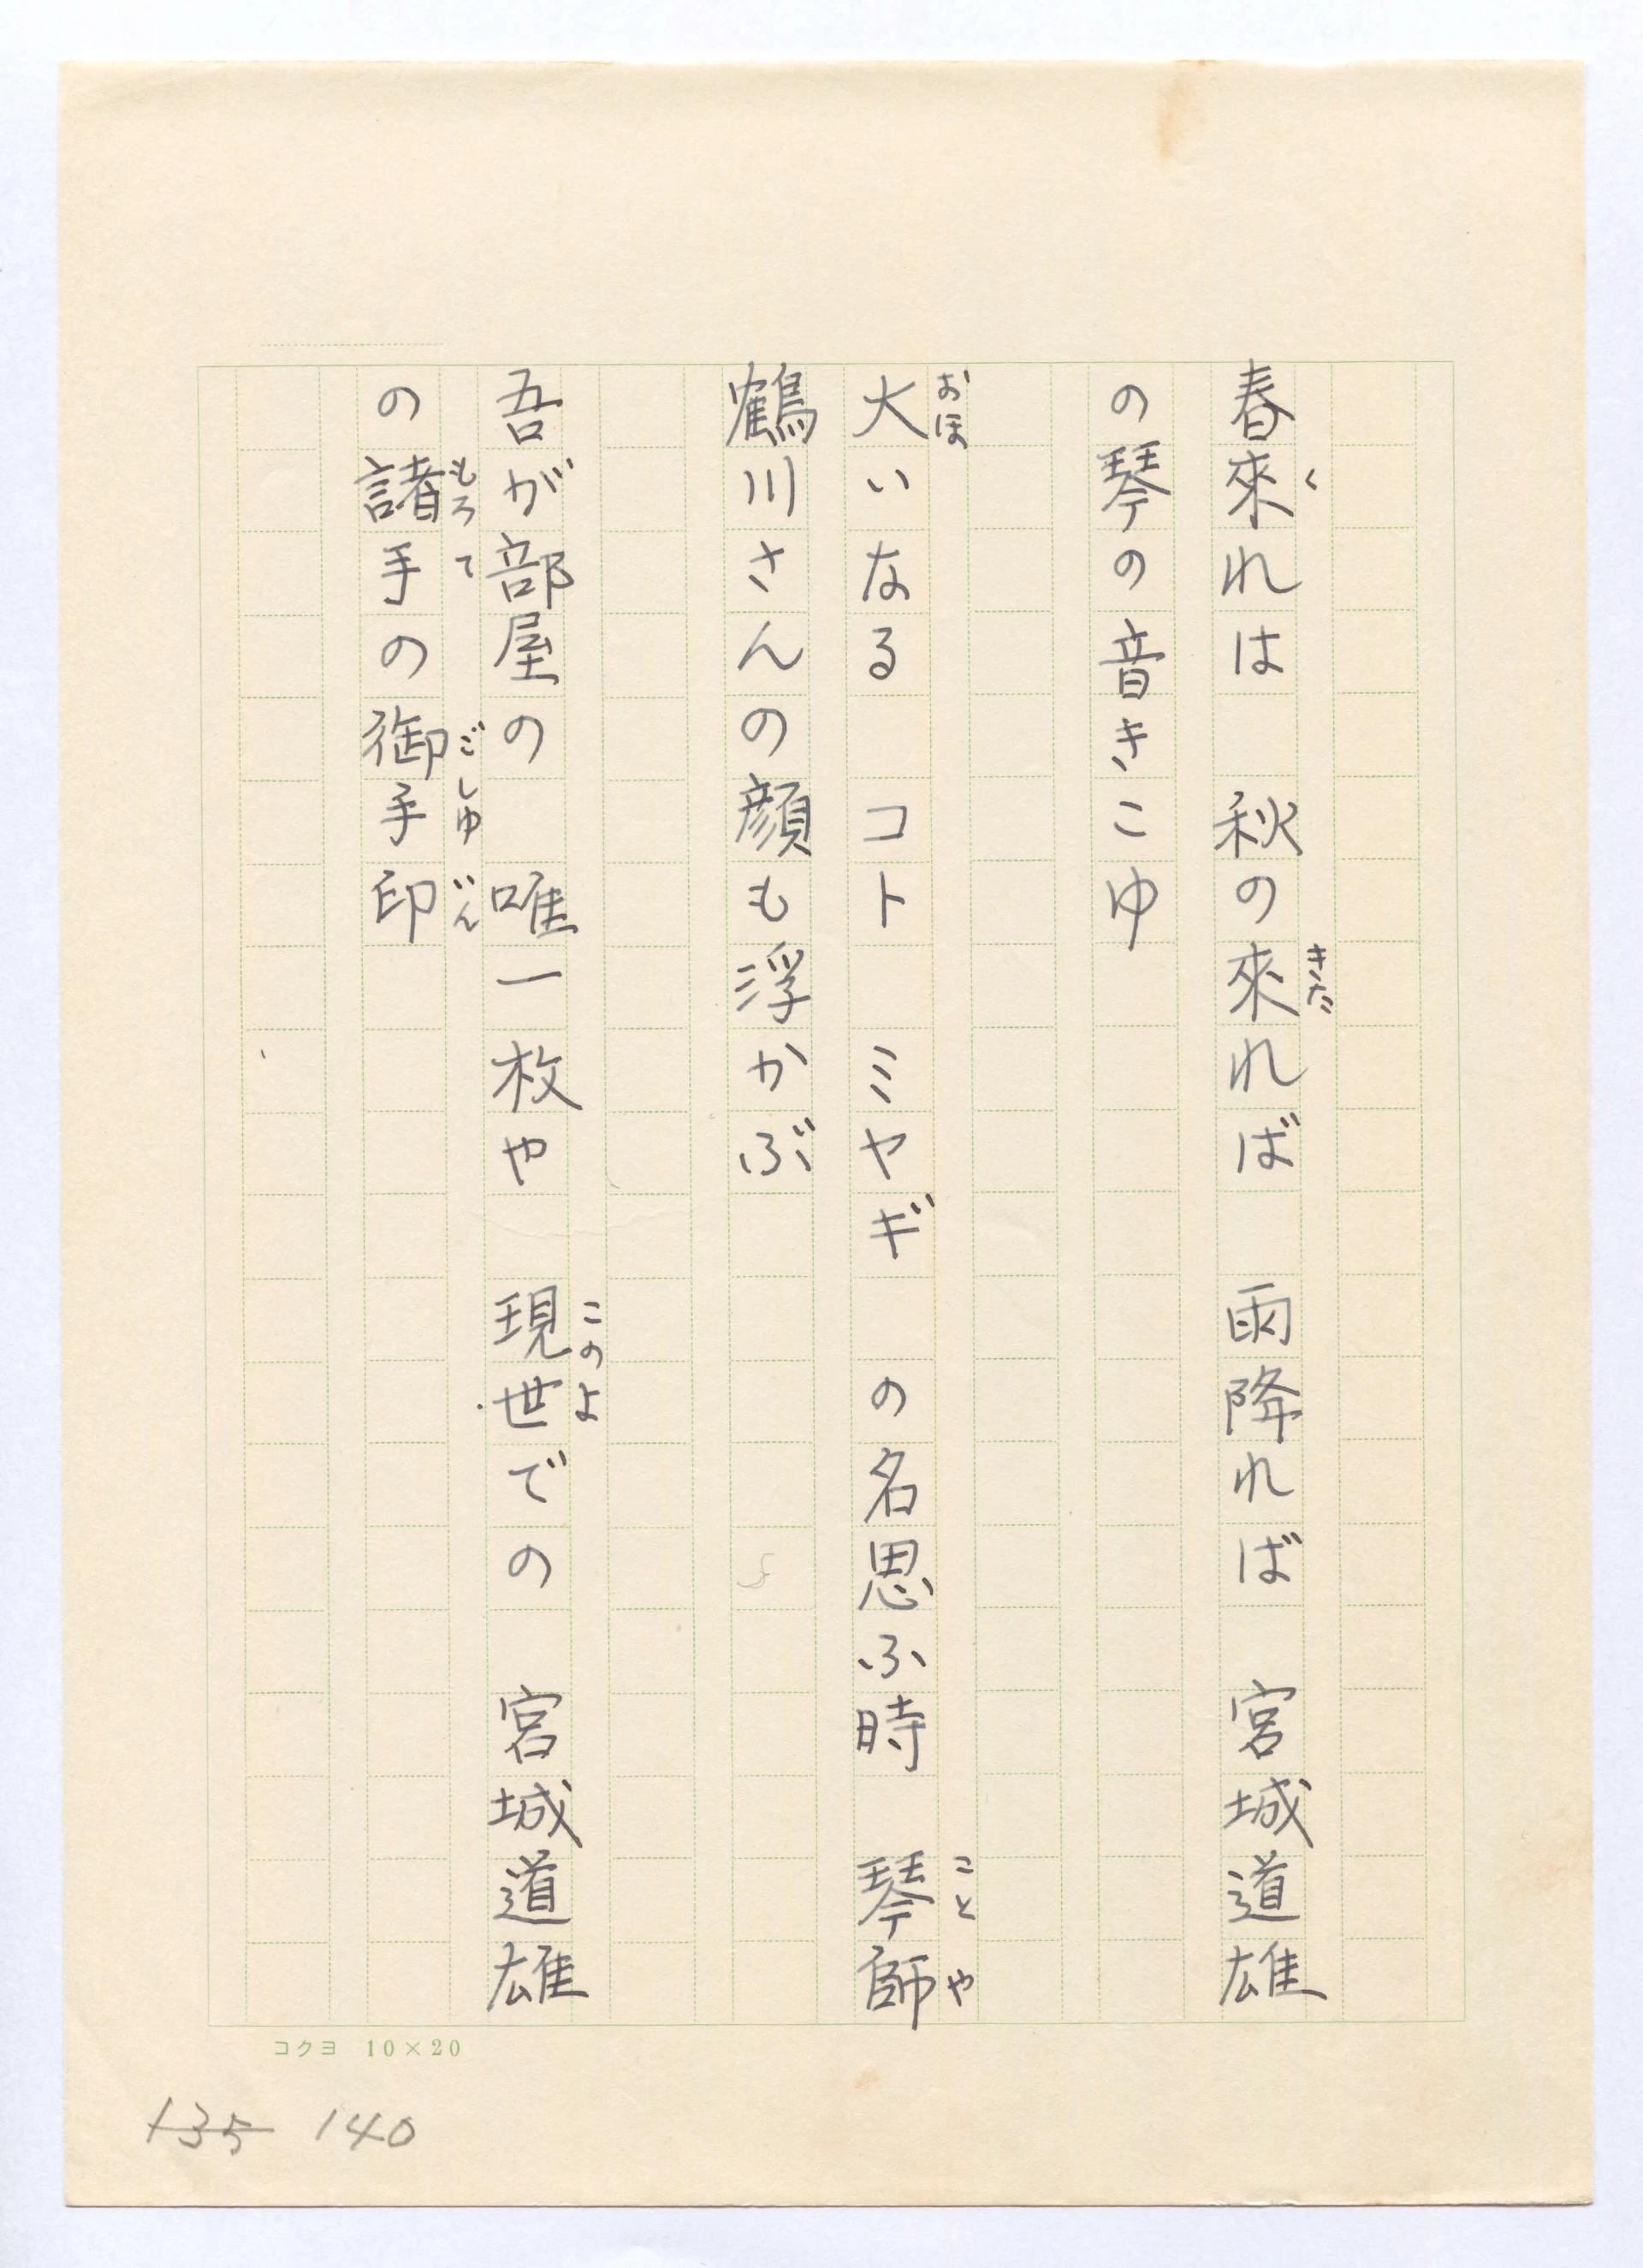 春來れは　秋の來れば　雨降れば　宮城道雄
く
きた
の琴の音きこゆ
大いなる　コト　ミヤギ　の名思ふ時　琴師
おほ
ことや
鶴川さんの顔も浮かぶ
吾が部屋の　唯一枚や　現世での　宮城道雄
このよ
の諸手の御手印
もろて
ごしゆいん
コクヨ　10×20
135　140